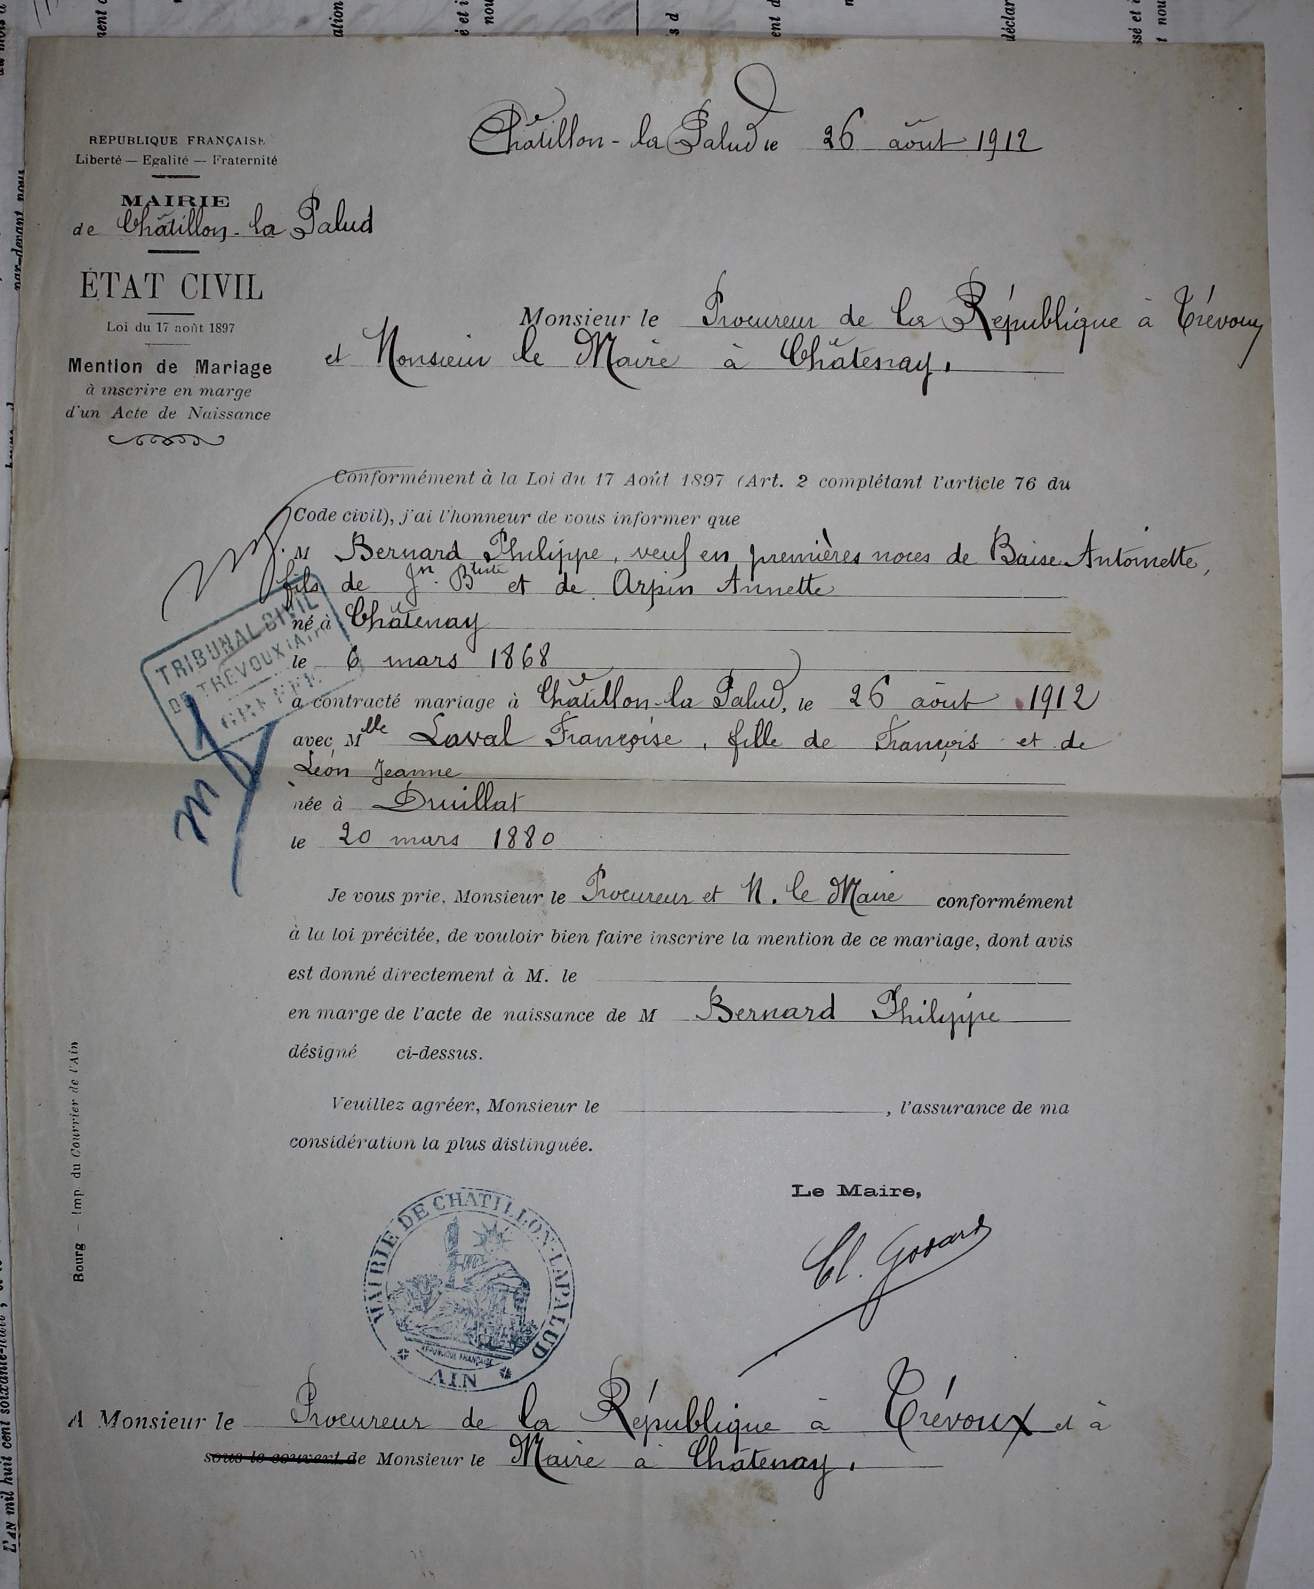 Châtillon-la Palud le 26 août 1912
REPUBLIQUE FRANÇAISE
Liberté — Egalité — Fraternité
MAIRIE
de Châtillon-la Palud
ÉTAT CIVIL
Loi du 17 août 1897
Mention de Mariage
à inscrire en marge
d'un Acte de Naissance
Monsieur le Procureur de la République à Trévoux
et Monsieur le Maire à Châtenay.
Conformément à la Loi du 17 Août 1897 (Art. 2 complétant l'article 76 du
Code civil), j'ai l'honneur de vous informer que
M Bernard Philippe, veuf en premières noces de Baise Antoinette,
fils de Jn. Btiste et de Arpin Annette
né à Châtenay
le 6 mars 1868
a contracté mariage à Châtillon-la Palud, le 26 août 1912
avec Mlle Laval Françoise, fille de François et de
Léon Jeanne
née à Druillat
le 20 mars 1880
TRIBUNAL CIVIL
DE TREVOUX (AIN)
GREFFE
Je vous prie, Monsieur le Procureur et M. le Maire conformément
à la loi précitée, de vouloir bien faire inscrire la mention de ce mariage, dont avis
est donné directement à M. le
en marge de l'acte de naissance de M Bernard Philippe
désigné ci-dessus.
Veuillez agréer, Monsieur le , l'assurance de ma
considération la plus distinguée.
Le Maire,
Cl. Godard
MAIRIE DE CHATILLON-LAPALUD
REPUBLIQUE FRANÇAISE
AIN
A Monsieur le Procureur de la République à Trévoux et à
sous le couvert de Monsieur le Maire à Châtenay.
Bourg — Imp. du Courrier de l'Ain
L'AN mil huit cent soixante-huit
par-devant nous